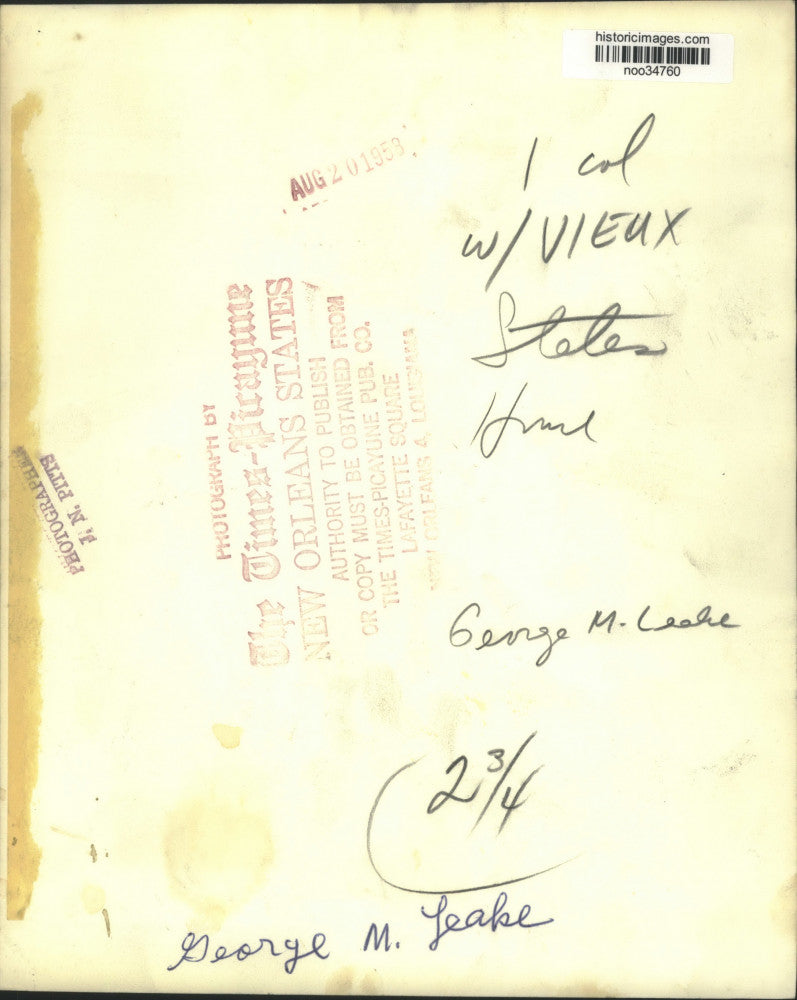 historicimages.com
noo34760
AUG 20 1958
1 col
w/VIEUX
States
Home
PHOTOGRAPH BY
The Times-Picayune
NEW ORLEANS STATES
AUTHORITY TO PUBLISH
OR COPY MUST BE OBTAINED FROM
THE TIMES-PICAYUNE PUB. CO.
LAFAYETTE SQUARE
NEW ORLEANS 4, LOUISIANA
PHOTOGRAPHER
J. N. PITTS
George M. Leake
2 3/4
George M. Leake